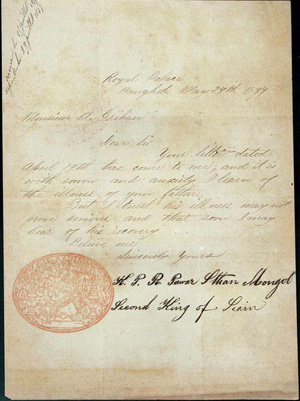 Royal Palace
Bangkok May 29th 18
Monsieur A.
Dear Sir
Your letter dated
April 19th has come to me, and it is
with sorrow and anxiety I learn of
the illness of your father.
But I trust his illness may not
prove serious and that soon I may
hear of his recovery
Believe me
Sincerely Yours
H. S. R. Pawar Sthan Mongol
Second King of Siam